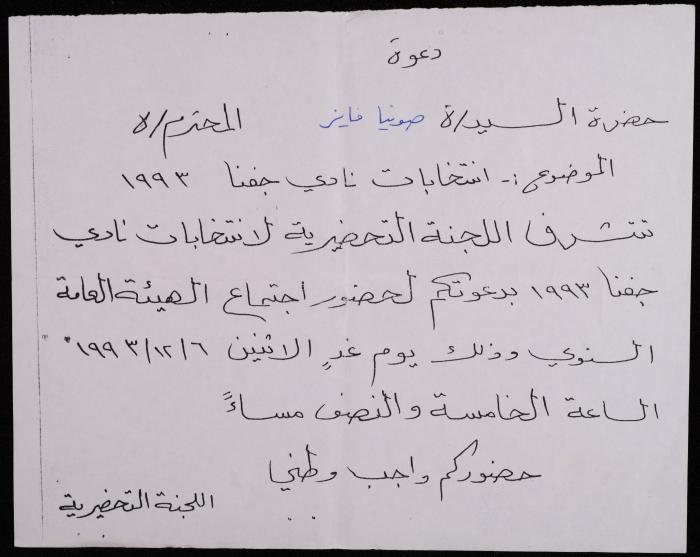 دعوة
حضرة السيد/ة صونيا فايز المحترم/ة
الموضوع :- انتخابات نادي جفنا ١٩٩٣
تتشرف اللجنة التحضيرية لانتخابات نادي
جفنا ١٩٩٣ بدعوتكم لحضور اجتماع الهيئة العامة
السنوي وذلك يوم غدٍ الاثنين ٦/١٢/١٩٩٣
الساعة الخامسة والنصف مساءً
حضوركم واجب وطني
اللجنة التحضيرية